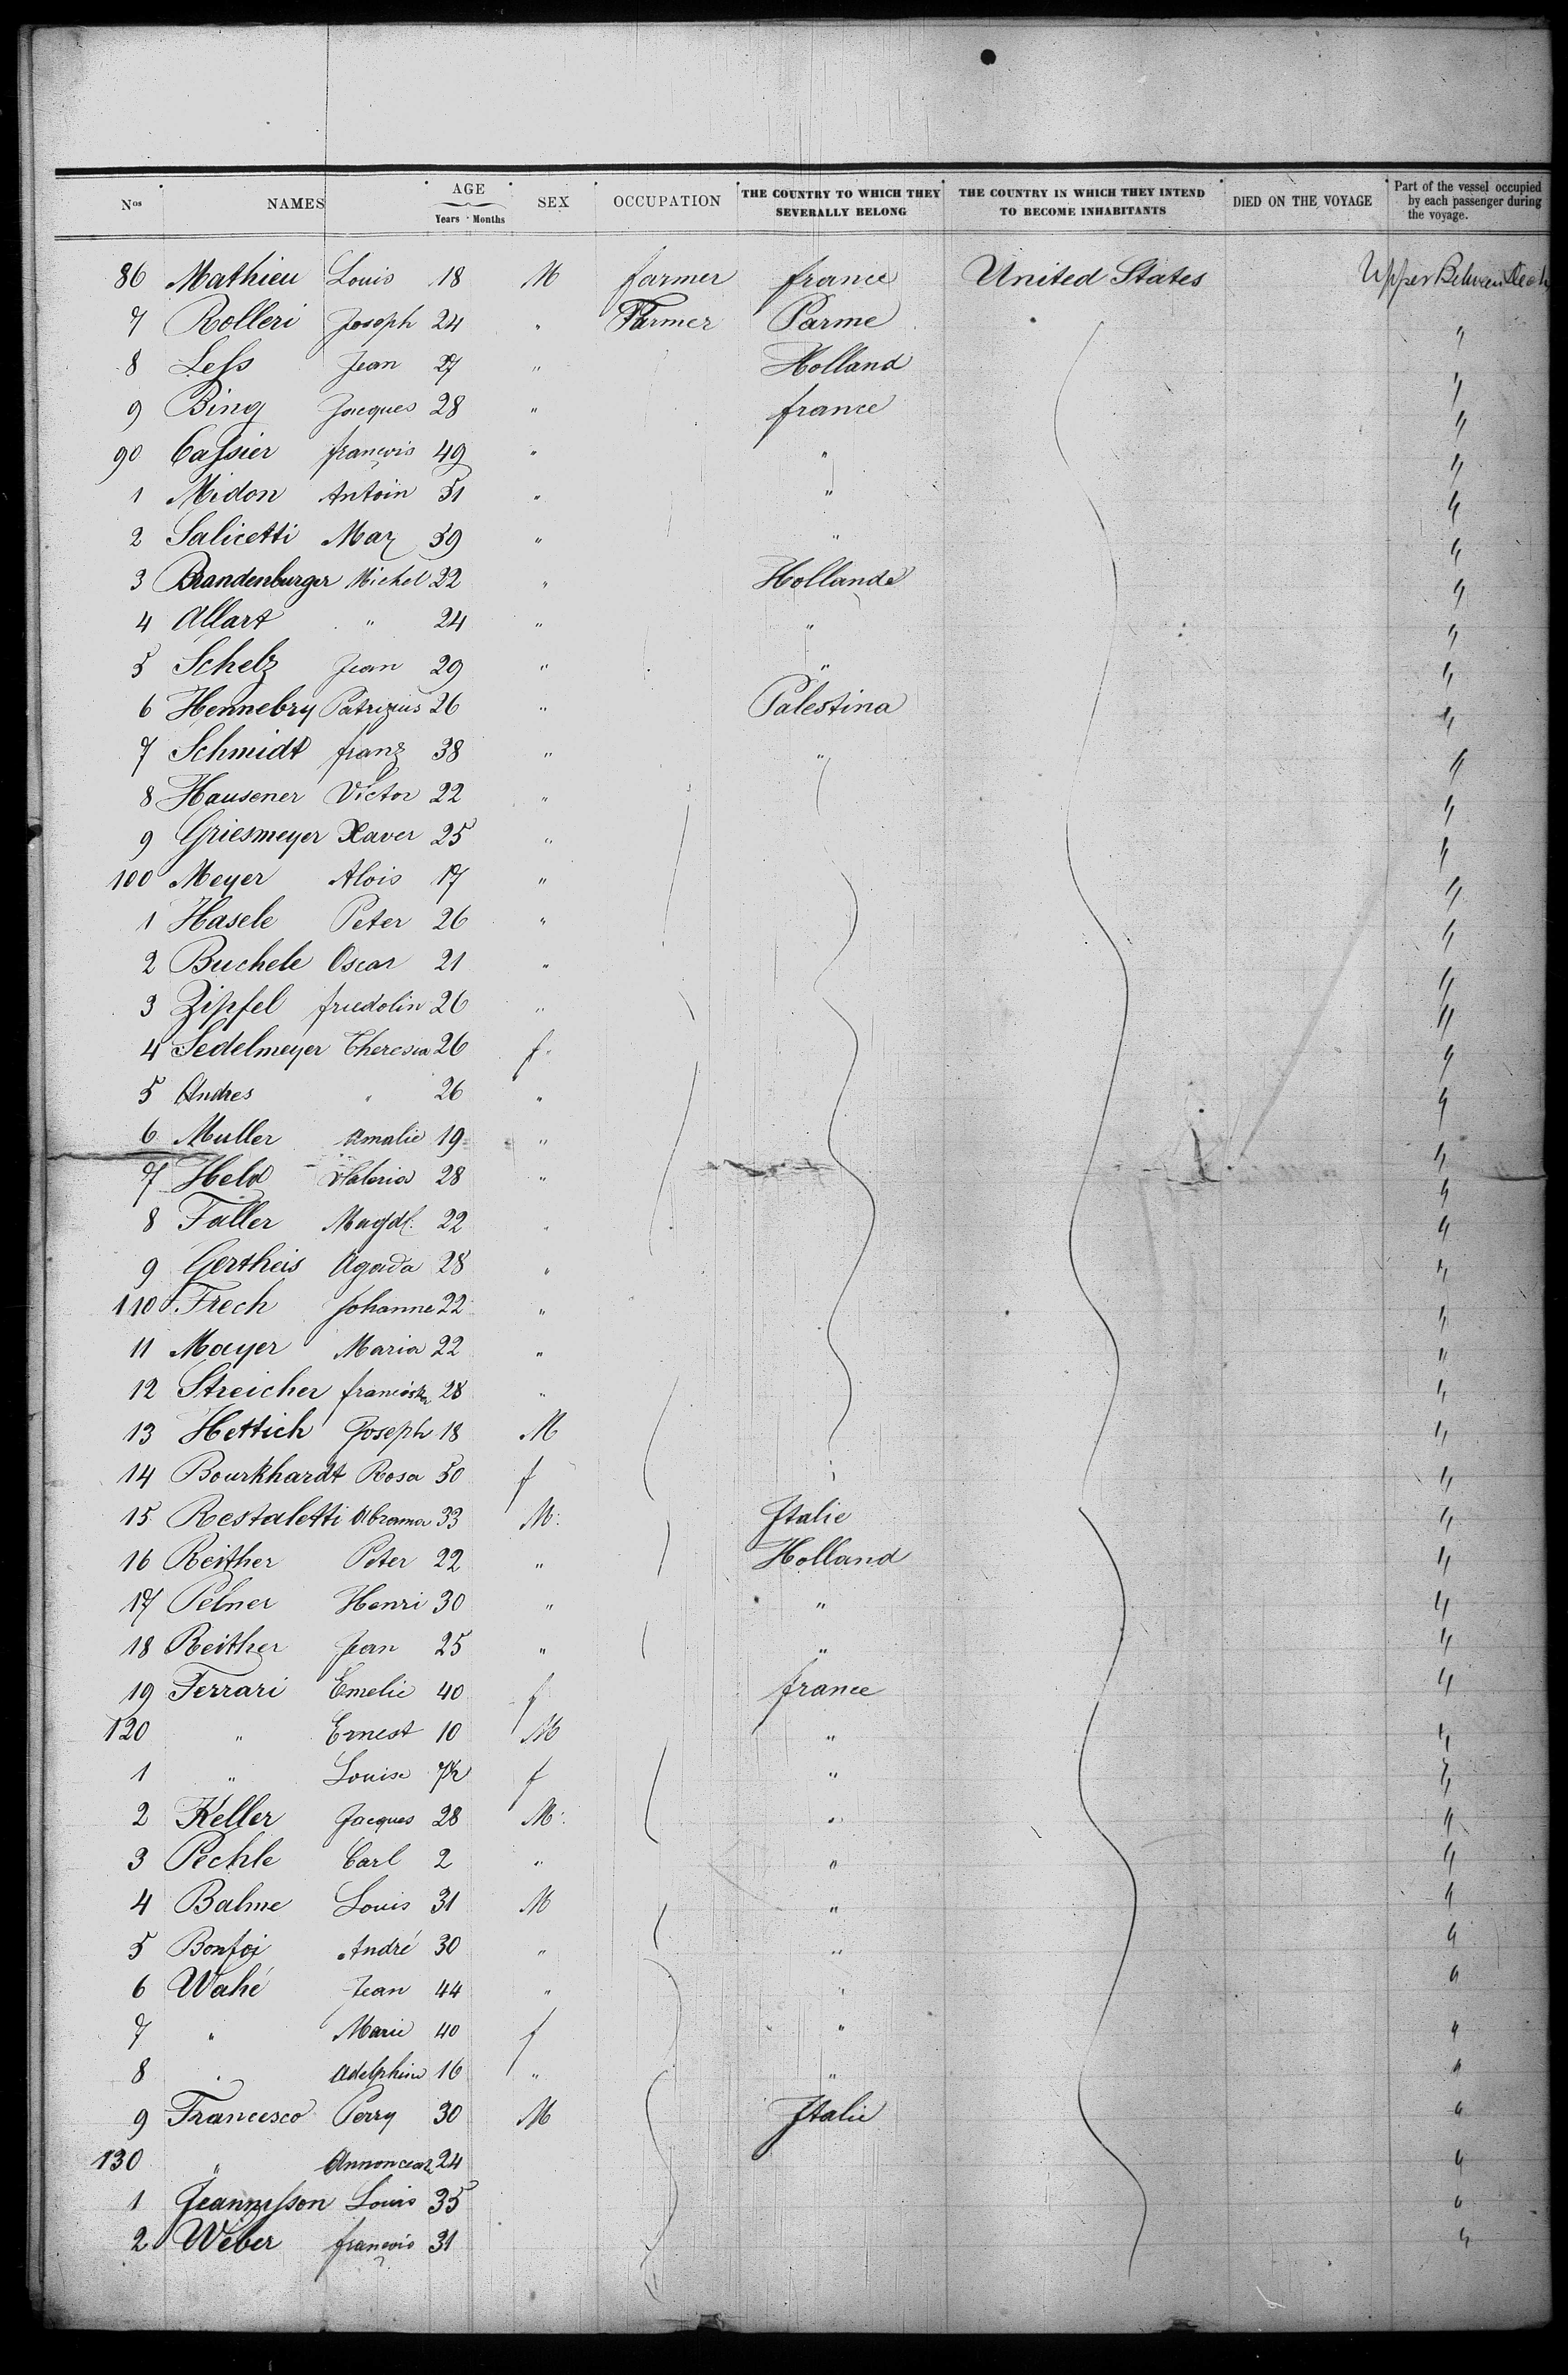 Nos NAMES AGE Years Months SEX OCCUPATION THE COUNTRY TO WHICH THEY SEVERALLY BELONG THE COUNTRY IN WHICH THEY INTEND TO BECOME INHABITANTS DIED ON THE VOYAGE Part of the vessel occupied by each passenger during the voyage.
86 Mathieu Louis 18 M farmer france United States Upper Between Deck
7 Rolleri Joseph 24 " Farmer Parme "
8 Less Jean 27 " Holland "
9 Bing Jacques 28 " france "
90 Cassier françois 49 " " "
1 Midon Antoin 51 " " "
2 Salicetti Mar 39 " " "
3 Brandenburger Michel 22 " Hollande "
4 Allart " 24 " " "
5 Schelz Jean 29 " " "
6 Hennebry Patrizius 26 " Palestina "
7 Schmidt franz 38 " " "
8 Hausener Victor 22 " "
9 Griesmeyer Xaver 25 " "
100 Meyer Alois 17 " "
1 Hasele Peter 26 " "
2 Buchele Oscar 21 " "
3 Zipfel friedolin 26 " "
4 Sedelmeyer Theresia 26 f "
5 Andres " 26 " "
6 Muller Amalie 19 " "
7 Held 28 " "
8 Faller Magdl. 22 " "
9 Gertheis Agada 28 " "
110 Frech Johanne 22 " "
11 Mayer Maria 22 " "
12 Streicher franciska 28 " "
13 Hettich Joseph 18 M "
14 Bourkhardt Rosa 50 f "
15 Restaletti Abrama 33 M. Italie "
16 Reither Peter 22 " Holland "
17 Pelner Henri 30 " " "
18 Reither Jean 25 " " "
19 Ferrari Emelie 40 f france "
120 " Ernest 10 M " "
1 " Louise 7½ f " "
2 Keller Jacques 28 M. " "
3 Pechle Carl 2 " " "
4 Balme Louis 31 M " "
5 Bonfoi André 30 " " "
6 Wahé Jean 44 " " "
7 " Marie 40 f " "
8 " Adelphine 16 " " "
9 Francesco Perry 30 M Italie "
130 " 24 "
1 Louis 35 "
2 Weber françois 31 "